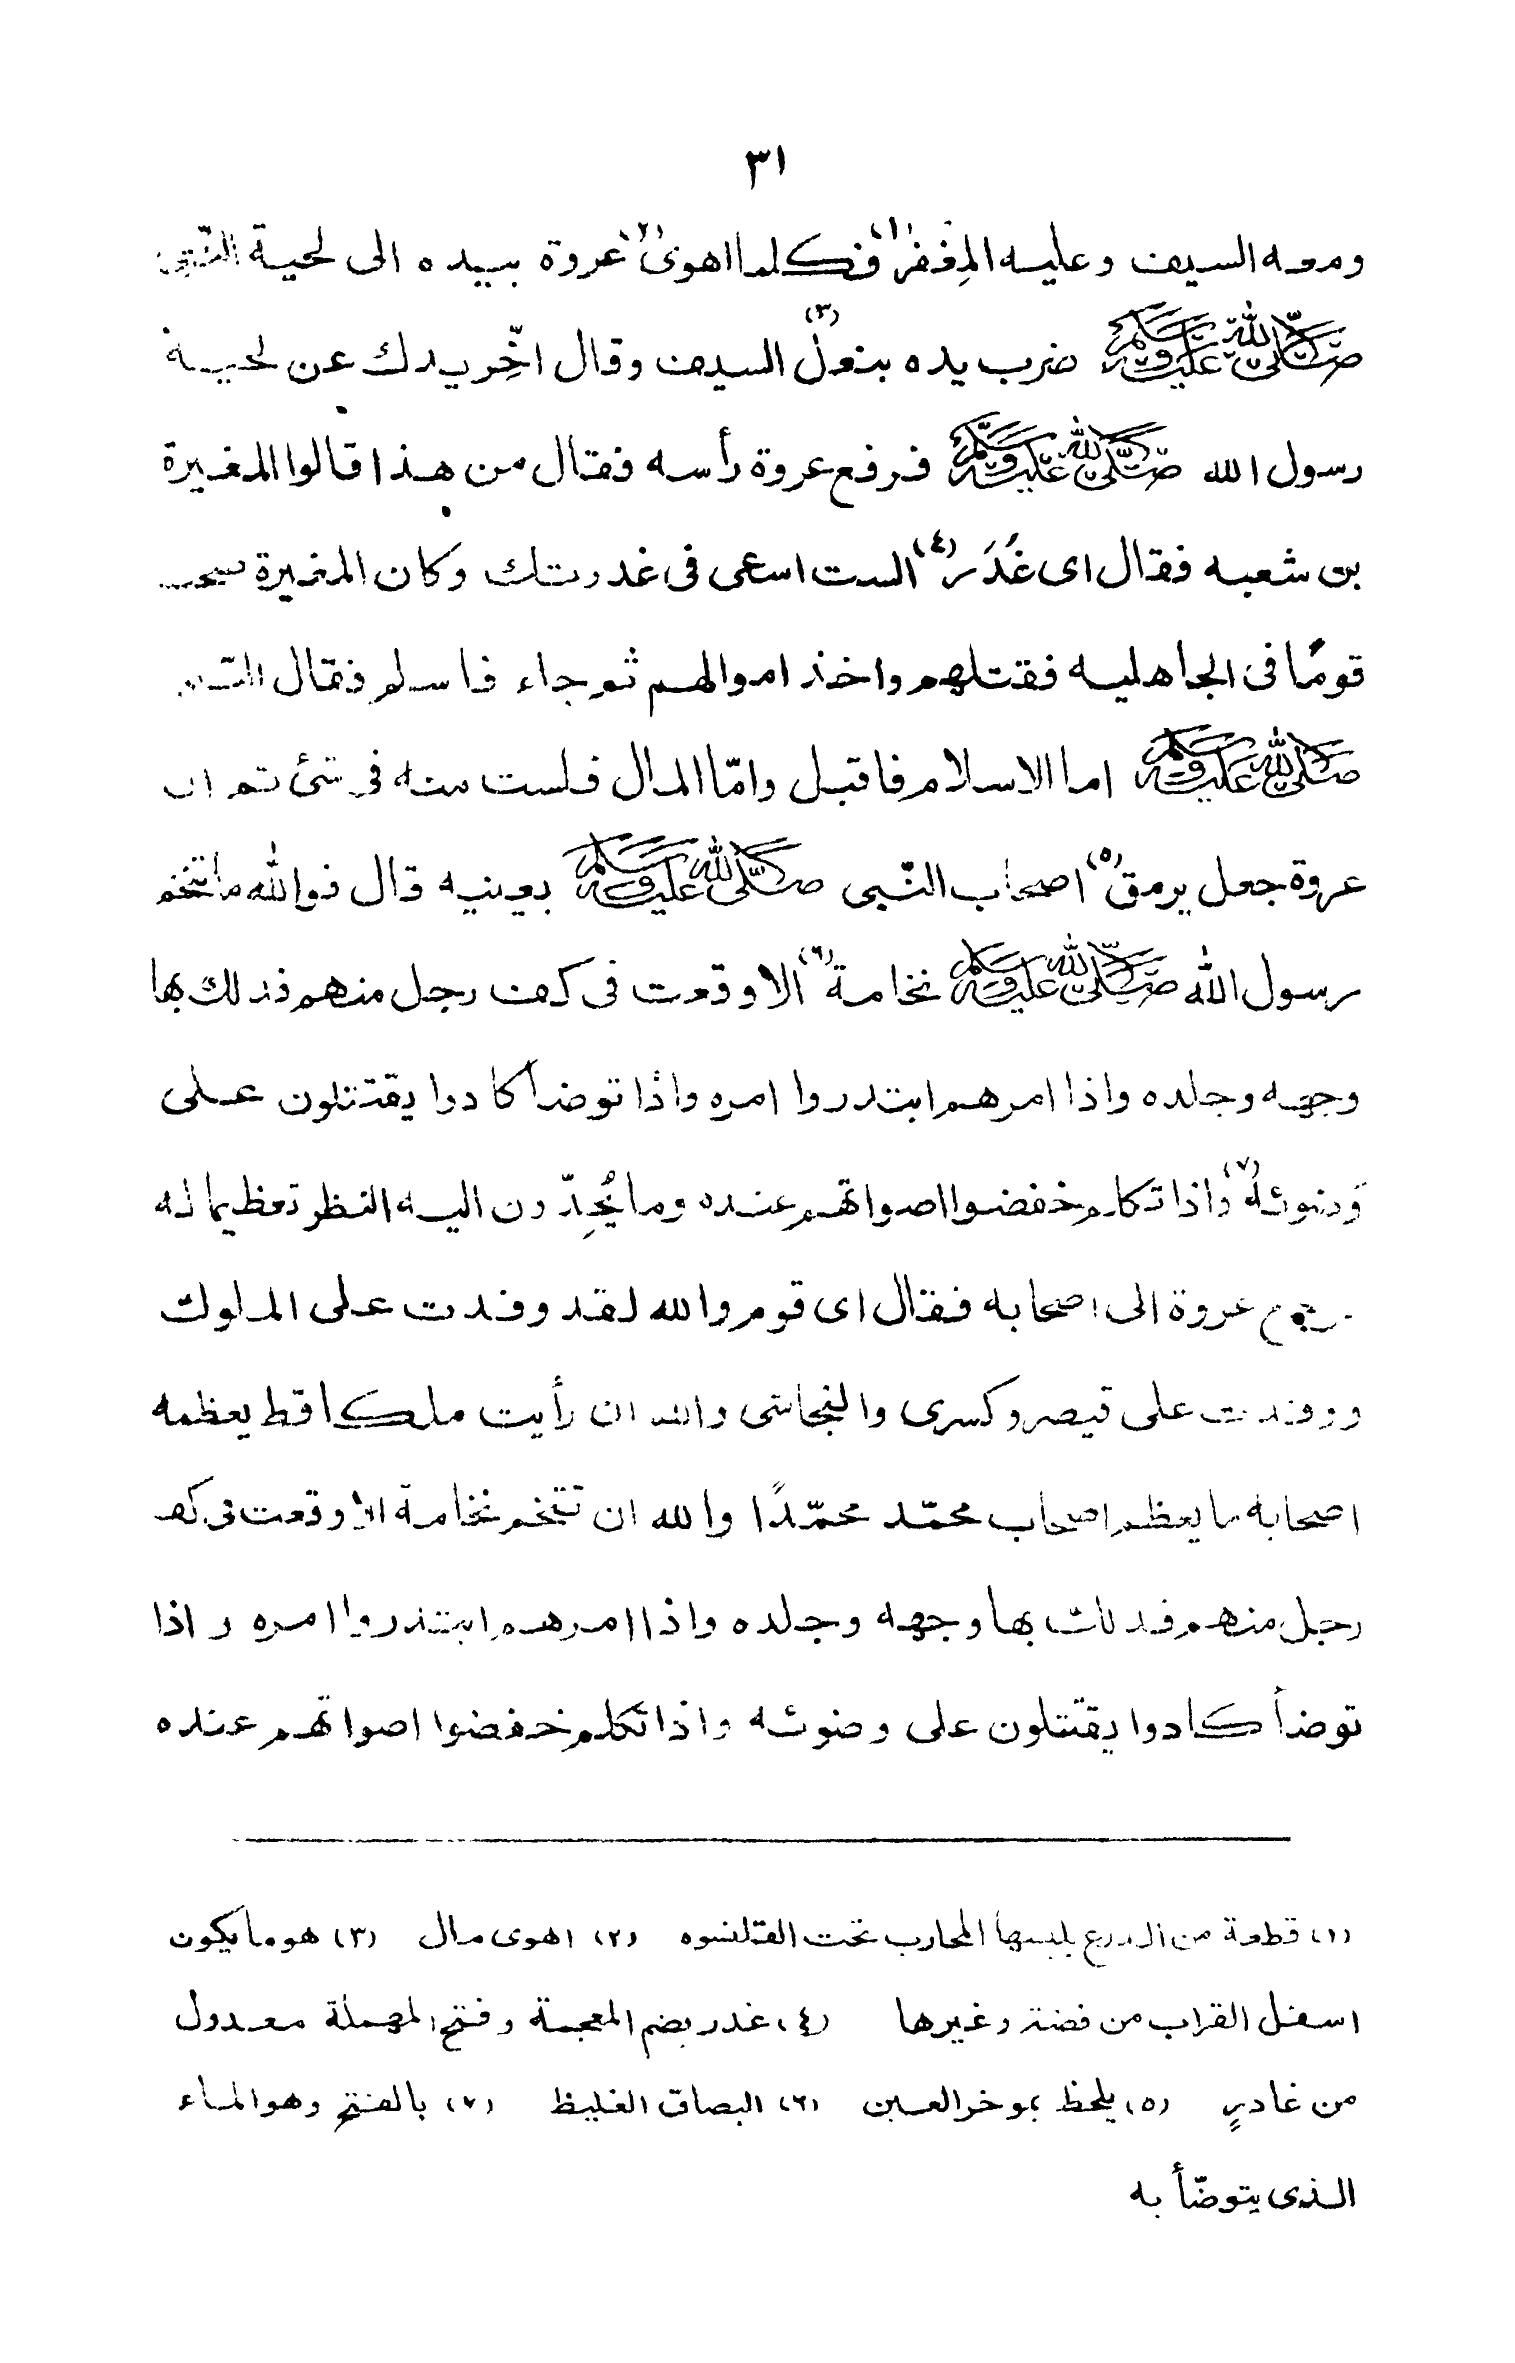 ٣١
ومعه السيف وعليه المِغفر(١) فكلما اهوى(٢) عروة بيده الى لحية النّبي
صلى الله عليه وسلم ضرب يده بنعل(٣) السيف وقال اخِّر يدك عن لحية
رسول الله صلى الله عليه وسلم فرفع عروة رأسه فقال من هذا قالوا المغيرة
بن شعبه فقال اى غُدَر(٤) الست اسعى فى غدرتك وكان المغيرة صحب
قومًا فى الجاهليه فقتلهم واخذ اموالهم ثم جاء فاسلم فقال النّبي
صلى الله عليه وسلم اما الاسلام فاقبل وامّا المال فلست منه فى شئ ثم ان
عروة جعل يرمق(٥) اصحاب النّبى صلى الله عليه وسلم بعينيه قال فوالله ما تنخم
رسول الله صلى الله عليه وسلم نخامة(٦) الا وقعت فى كف رجل منهم فدلك بها
وجهه وجلده واذا امرهم ابتدروا امره واذا توضأ كادوا يقتتلون على
وضوئه(٧) واذا تكلم خفضوا اصواتهم عنده وما يُحِدّون اليه النظر تعظيما له
فرجع عروة الى اصحابه فقال اى قوم والله لقد وفدت على الملوك
ووفدت على قيصر وكسرى والنجاشى والله ان رأيت ملكا قط يعظمه
اصحابه ما يعظم اصحاب محمّد محمّدًا والله ان تنخم نخامة الا وقعت فى كف
رجل منهم فدلك بها وجهه وجلده واذا امرهم ابتدروا امره واذا
توضأ كادوا يقتتلون على وضوئه واذا تكلم خفضوا اصواتهم عنده
(١) قطعة من الدرع يلبسها المحارب تحت القلنسوه (٢) اهوى مال (٣) هو ما يكون
اسفل القراب من فضة وغيرها (٤) غدر بضم المعجمة وفتح المهملة معدول
من غادرٍ (٥) يلحظ بموخر العين (٦) البصاق الغليظ (٧) بالفتح وهو الماء
الذى يتوضّأ به